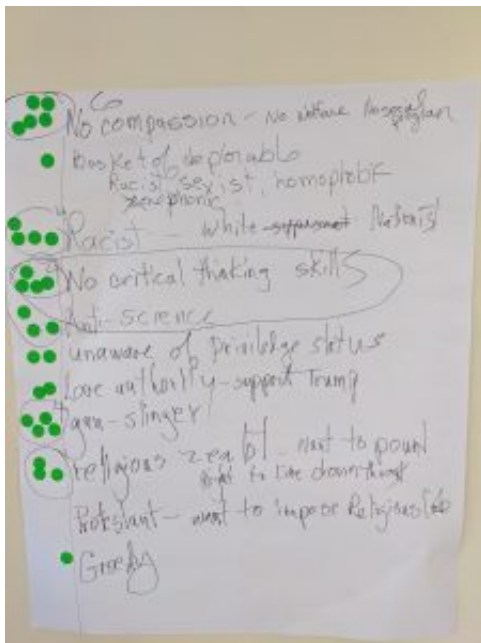 6
No compassion - No welfare No
Basket of deplorable
Racist, sexist, homophobic
xenophonic
4
Racist - white supremest Nationist
4
No critical thinking skills
Anti-science
unaware of priviledge status
Love authority - support Trump
4
gun-slinger
religious zealot - want to pound
right to life down throat
Protestant - want to impose Religious
Greedy